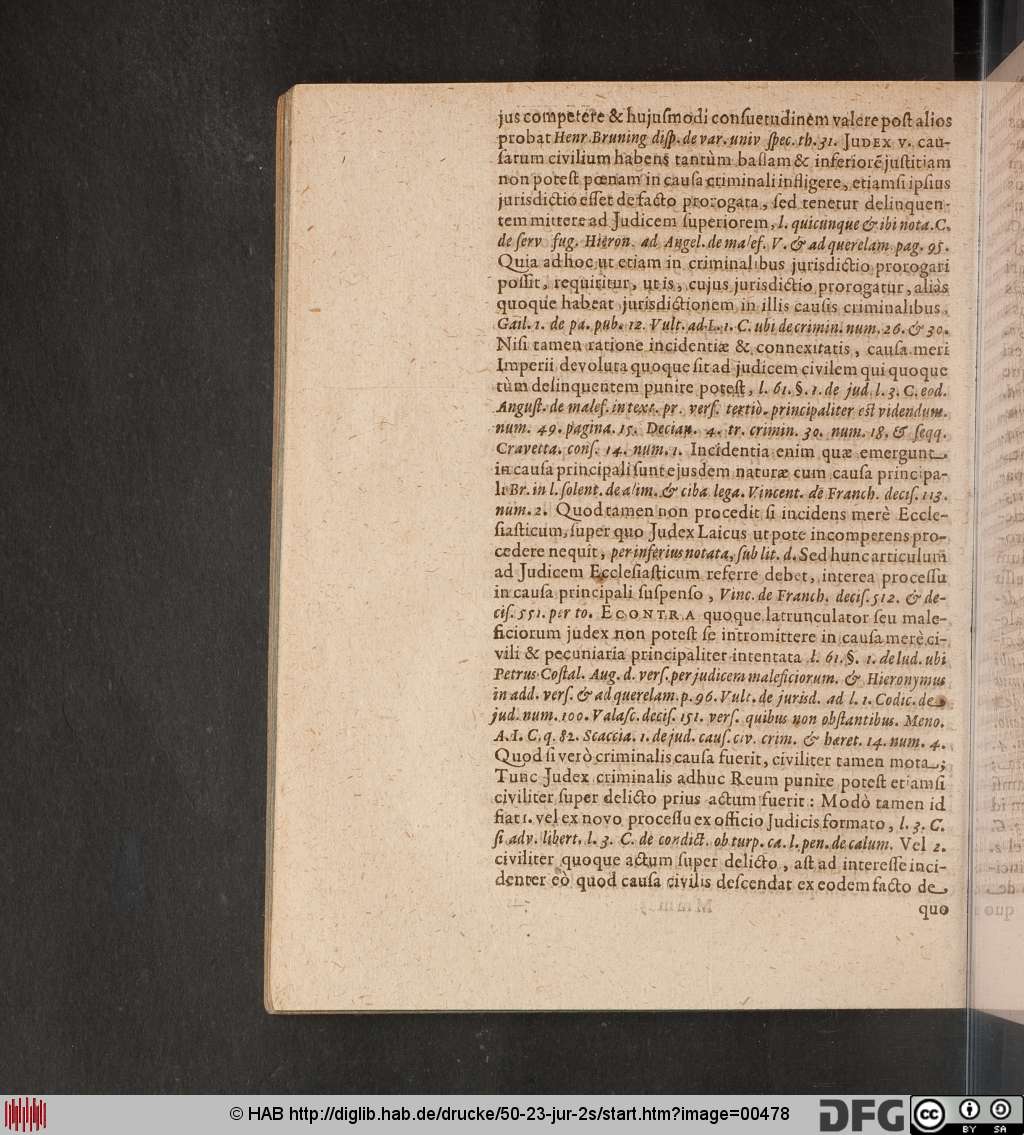 jus competere & hujuſmodi conſuetudinem valere poſt alios
probat Henr. Bruning diſp. de var. univ ſpec. th. 31. JUDEX v. cau-
ſarum civilium habens tantùm baſſam & inferiorẽ juſtitiam
non poteſt pœnam in cauſa criminali infligere, etiamſi ipſius
jurisdictio eſſet de facto prorogata, ſed tenetur delinquen-
tem mittere ad Judicem ſuperiorem, l. quicunque & ibi nota. C.
de ſerv fug. Hieron. ad Angel. de malef. V. & ad querelam pag. 95.
Quia ad hoc ut etiam in criminalibus jurisdictio prorogari
poſſit, requiritur, ut is, cujus jurisdictio prorogatur, aliàs
quoque habeat jurisdictionem in illis cauſis criminalibus,
Gail. 1. de pa. pub. 12. Vult. ad L. 1. C. ubi de crimin. num. 26. & 30.
Niſi tamen ratione incidentiæ & connexitatis, cauſa meri
Imperii devoluta quoque ſit ad judicem civilem qui quoque
tùm delinquentem punire poteſt, l. 61. §. 1. de jud. l. 3. C. eod.
Anguſt. de malef. in text. pr. verſ. tertiò. principaliter eſt videndum.
num. 49. pagina. 15. Decian. 4. tr. crimin. 30. num. 18. & ſeqq.
Cravetta. conſ. 14. num. 1. Incidentia enim quæ emergunt
in cauſa principali ſunt ejusdem naturæ cum cauſa principa-
li Br. in l. ſolent. de alim. & ciba lega. Vincent. de Franch. deciſ. 113.
num. 2. Quod tamen non procedit ſi incidens merè Eccle-
ſiaſticum, ſuper quo Judex Laicus ut pote incompetens pro-
cedere nequit, per inferius notata, ſub lit. d. Sed hunc articulum
ad Judicem Eccleſiaſticum referre debet, interea proceſſu
in cauſa principali ſuſpenſo, Vinc. de Franch. deciſ. 512. & de-
ciſ. 551. per to. ECONTRA quoque latrunculator ſeu male-
ficiorum judex non poteſt ſe intromittere in cauſa merè ci-
vili & pecuniaria principaliter intentata l. 61. §. 1. de lud. ubi
Petrus Coſtal. Aug. d. verſ. per judicem maleficiorum. & Hieronymus
in add. verſ. & ad querelam. p. 96. Vult. de jurisd. ad l. 1. Codic. de
jud. num. 100. Valaſc. deciſ. 151. verſ. quibus non obſtantibus. Meno.
A. I. C. q. 82. Scaccia. 1. de jud. cauſ. civ. crim. & hæret. 14. num. 4.
Quod ſi verò criminalis cauſa fuerit, civiliter tamen mota;
Tunc Judex criminalis adhuc Reum punire poteſt etiamſi
civiliter ſuper delicto prius actum fuerit: Modò tamen id
fiat 1. vel ex novo proceſſu ex officio Judicis formato, l. 3. C.
ſi adv. libert. l. 3. C. de condict. ob turp. ca. l. pen. de calum. Vel 2.
civiliter quoque actum ſuper delicto, aſt ad intereſſe inci-
denter eò quod cauſa civilis deſcendat ex eodem facto de
quo
© HAB http://diglib.hab.de/drucke/50-23-jur-2s/start.htm?image=00478
DFG
cc
BY SA